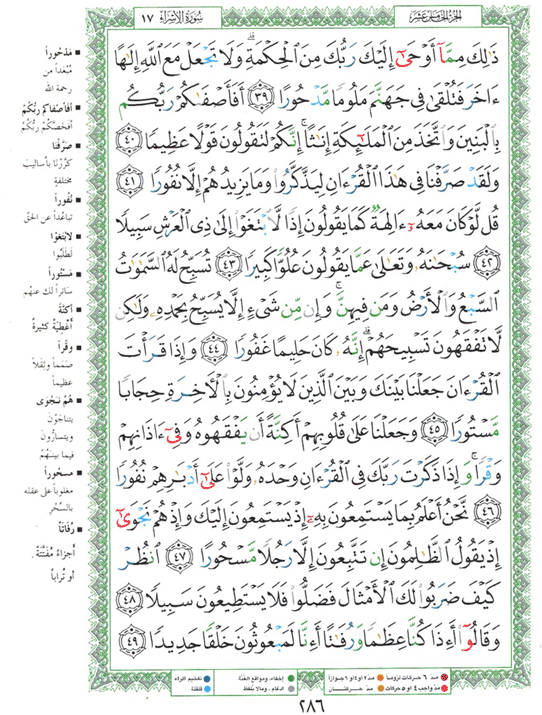 الجزء الخامس عشر
سورة الإسراء ١٧
ذَٰلِكَ مِمَّآ أَوْحَىٰٓ إِلَيْكَ رَبُّكَ مِنَ ٱلْحِكْمَةِ ۗ وَلَا تَجْعَلْ مَعَ ٱللَّهِ إِلَٰهًا
ءَاخَرَ فَتُلْقَىٰ فِى جَهَنَّمَ مَلُومًا مَّدْحُورًا ﴿٣٩﴾ أَفَأَصْفَىٰكُمْ رَبُّكُم
بِٱلْبَنِينَ وَٱتَّخَذَ مِنَ ٱلْمَلَٰٓئِكَةِ إِنَٰثًا ۚ إِنَّكُمْ لَتَقُولُونَ قَوْلًا عَظِيمًا ﴿٤٠﴾
وَلَقَدْ صَرَّفْنَا فِى هَٰذَا ٱلْقُرْءَانِ لِيَذَّكَّرُوا۟ وَمَا يَزِيدُهُمْ إِلَّا نُفُورًا ﴿٤١﴾
قُل لَّوْ كَانَ مَعَهُۥٓ ءَالِهَةٌ كَمَا يَقُولُونَ إِذًا لَّٱبْتَغَوْا۟ إِلَىٰ ذِى ٱلْعَرْشِ سَبِيلًا
﴿٤٢﴾ سُبْحَٰنَهُۥ وَتَعَٰلَىٰ عَمَّا يَقُولُونَ عُلُوًّا كَبِيرًا ﴿٤٣﴾ تُسَبِّحُ لَهُ ٱلسَّمَٰوَٰتُ
ٱلسَّبْعُ وَٱلْأَرْضُ وَمَن فِيهِنَّ ۚ وَإِن مِّن شَىْءٍ إِلَّا يُسَبِّحُ بِحَمْدِهِۦ وَلَٰكِن
لَّا تَفْقَهُونَ تَسْبِيحَهُمْ ۗ إِنَّهُۥ كَانَ حَلِيمًا غَفُورًا ﴿٤٤﴾ وَإِذَا قَرَأْتَ
ٱلْقُرْءَانَ جَعَلْنَا بَيْنَكَ وَبَيْنَ ٱلَّذِينَ لَا يُؤْمِنُونَ بِٱلْءَاخِرَةِ حِجَابًا
مَّسْتُورًا ﴿٤٥﴾ وَجَعَلْنَا عَلَىٰ قُلُوبِهِمْ أَكِنَّةً أَن يَفْقَهُوهُ وَفِىٓ ءَاذَانِهِمْ
وَقْرًا ۚ وَإِذَا ذَكَرْتَ رَبَّكَ فِى ٱلْقُرْءَانِ وَحْدَهُۥ وَلَّوْا۟ عَلَىٰٓ أَدْبَٰرِهِمْ نُفُورًا
﴿٤٦﴾ نَّحْنُ أَعْلَمُ بِمَا يَسْتَمِعُونَ بِهِۦٓ إِذْ يَسْتَمِعُونَ إِلَيْكَ وَإِذْ هُمْ نَجْوَىٰٓ
إِذْ يَقُولُ ٱلظَّٰلِمُونَ إِن تَتَّبِعُونَ إِلَّا رَجُلًا مَّسْحُورًا ﴿٤٧﴾ ٱنظُرْ
كَيْفَ ضَرَبُوا۟ لَكَ ٱلْأَمْثَالَ فَضَلُّوا۟ فَلَا يَسْتَطِيعُونَ سَبِيلًا ﴿٤٨﴾
وَقَالُوٓا۟ أَءِذَا كُنَّا عِظَٰمًا وَرُفَٰتًا أَءِنَّا لَمَبْعُوثُونَ خَلْقًا جَدِيدًا ﴿٤٩﴾
مَدْحُوراً
مُبْعَداً من
رحمة الله
أفَأصْفاكم ربُّكُمْ
أفَخَصَّكُمْ رَبُّكُمْ
صَرَّفْنَا
كَرَّرْنا بأساليبَ
مختلفةٍ
نُفُوراً
تباعُداً عن الحقّ
لابْتَغَوْا
لَطَلَبُوا
مَسْتُوراً
ساتراً لك عنهُم
أكِنَّةً
أغْطِيَةً كثيرةً
وقْراً
صَمَماً وثِقَلاً
عظيماً
هُمْ نَجْوَى
يتناجَوْن
ويتسارُّون
فيما بينهُمْ
مسحُوراً
مغلوباً على عقله
بالسِّحْرِ
رُفَاتاً
أجزاءً مُفَتَّتَةً
أو تُراباً
مدّ ٦ حركات لزوماً
مدّ ٢ أو ٤ أو ٦ جوازاً
إخفاء، ومواقع الغُنَّة
تفخيم الراء
مدّ واجب ٤ أو ٥ حركات
مدّ حركتان
ادغام، وما لا يُلفَظ
قلقلة
٢٨٦